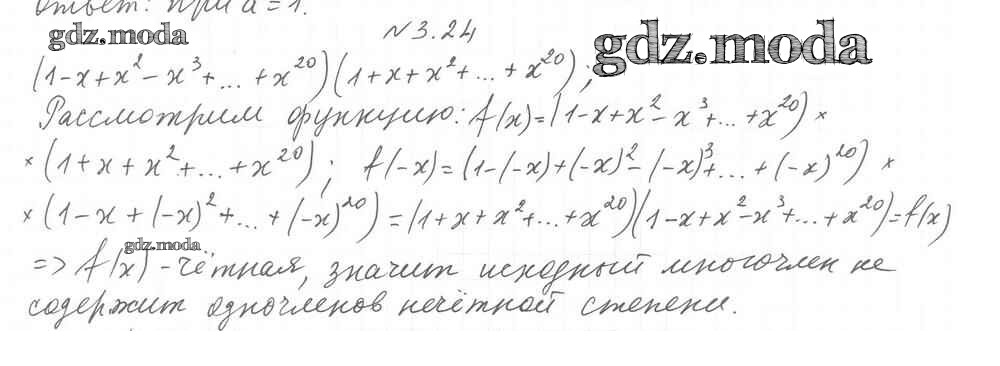 Ответ: при a = 1.
gdz.moda
N 3.24
gdz.moda
(1-x+x²-x³+...+x²⁰)(1+x+x²+...+x²⁰);
Рассмотрим функцию: f(x)=(1-x+x²-x³+...+x²⁰)×
×(1+x+x²+...+x²⁰); f(-x)=(1-(-x)+(-x)²-(-x)³+...+(-x)²⁰)×
×(1-x+(-x)²+...+(-x)²⁰)=(1+x+x²+...+x²⁰)(1-x+x²-x³+...+x²⁰)=f(x)
gdz.moda
=> f(x) - чётная, значит исходный многочлен не
содержит одночленов нечётной степени.